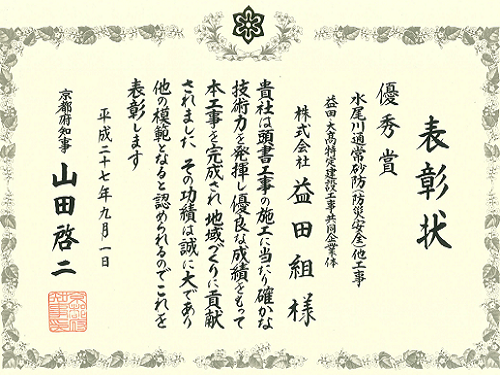 表彰状
優秀賞
水尾川通常砂防(防災・安全)他工事
益田・大高特定建設工事共同企業体
株式会社 益田組 様
貴社は頭書工事の施工に当たり確かな
技術力を発揮し優良な成績をもって
本工事を完成され 地域づくりに貢献
されました その功績は誠に大であり
他の模範となると認められるのでこれを
表彰します
平成二十七年九月一日
京都府知事 山田啓二